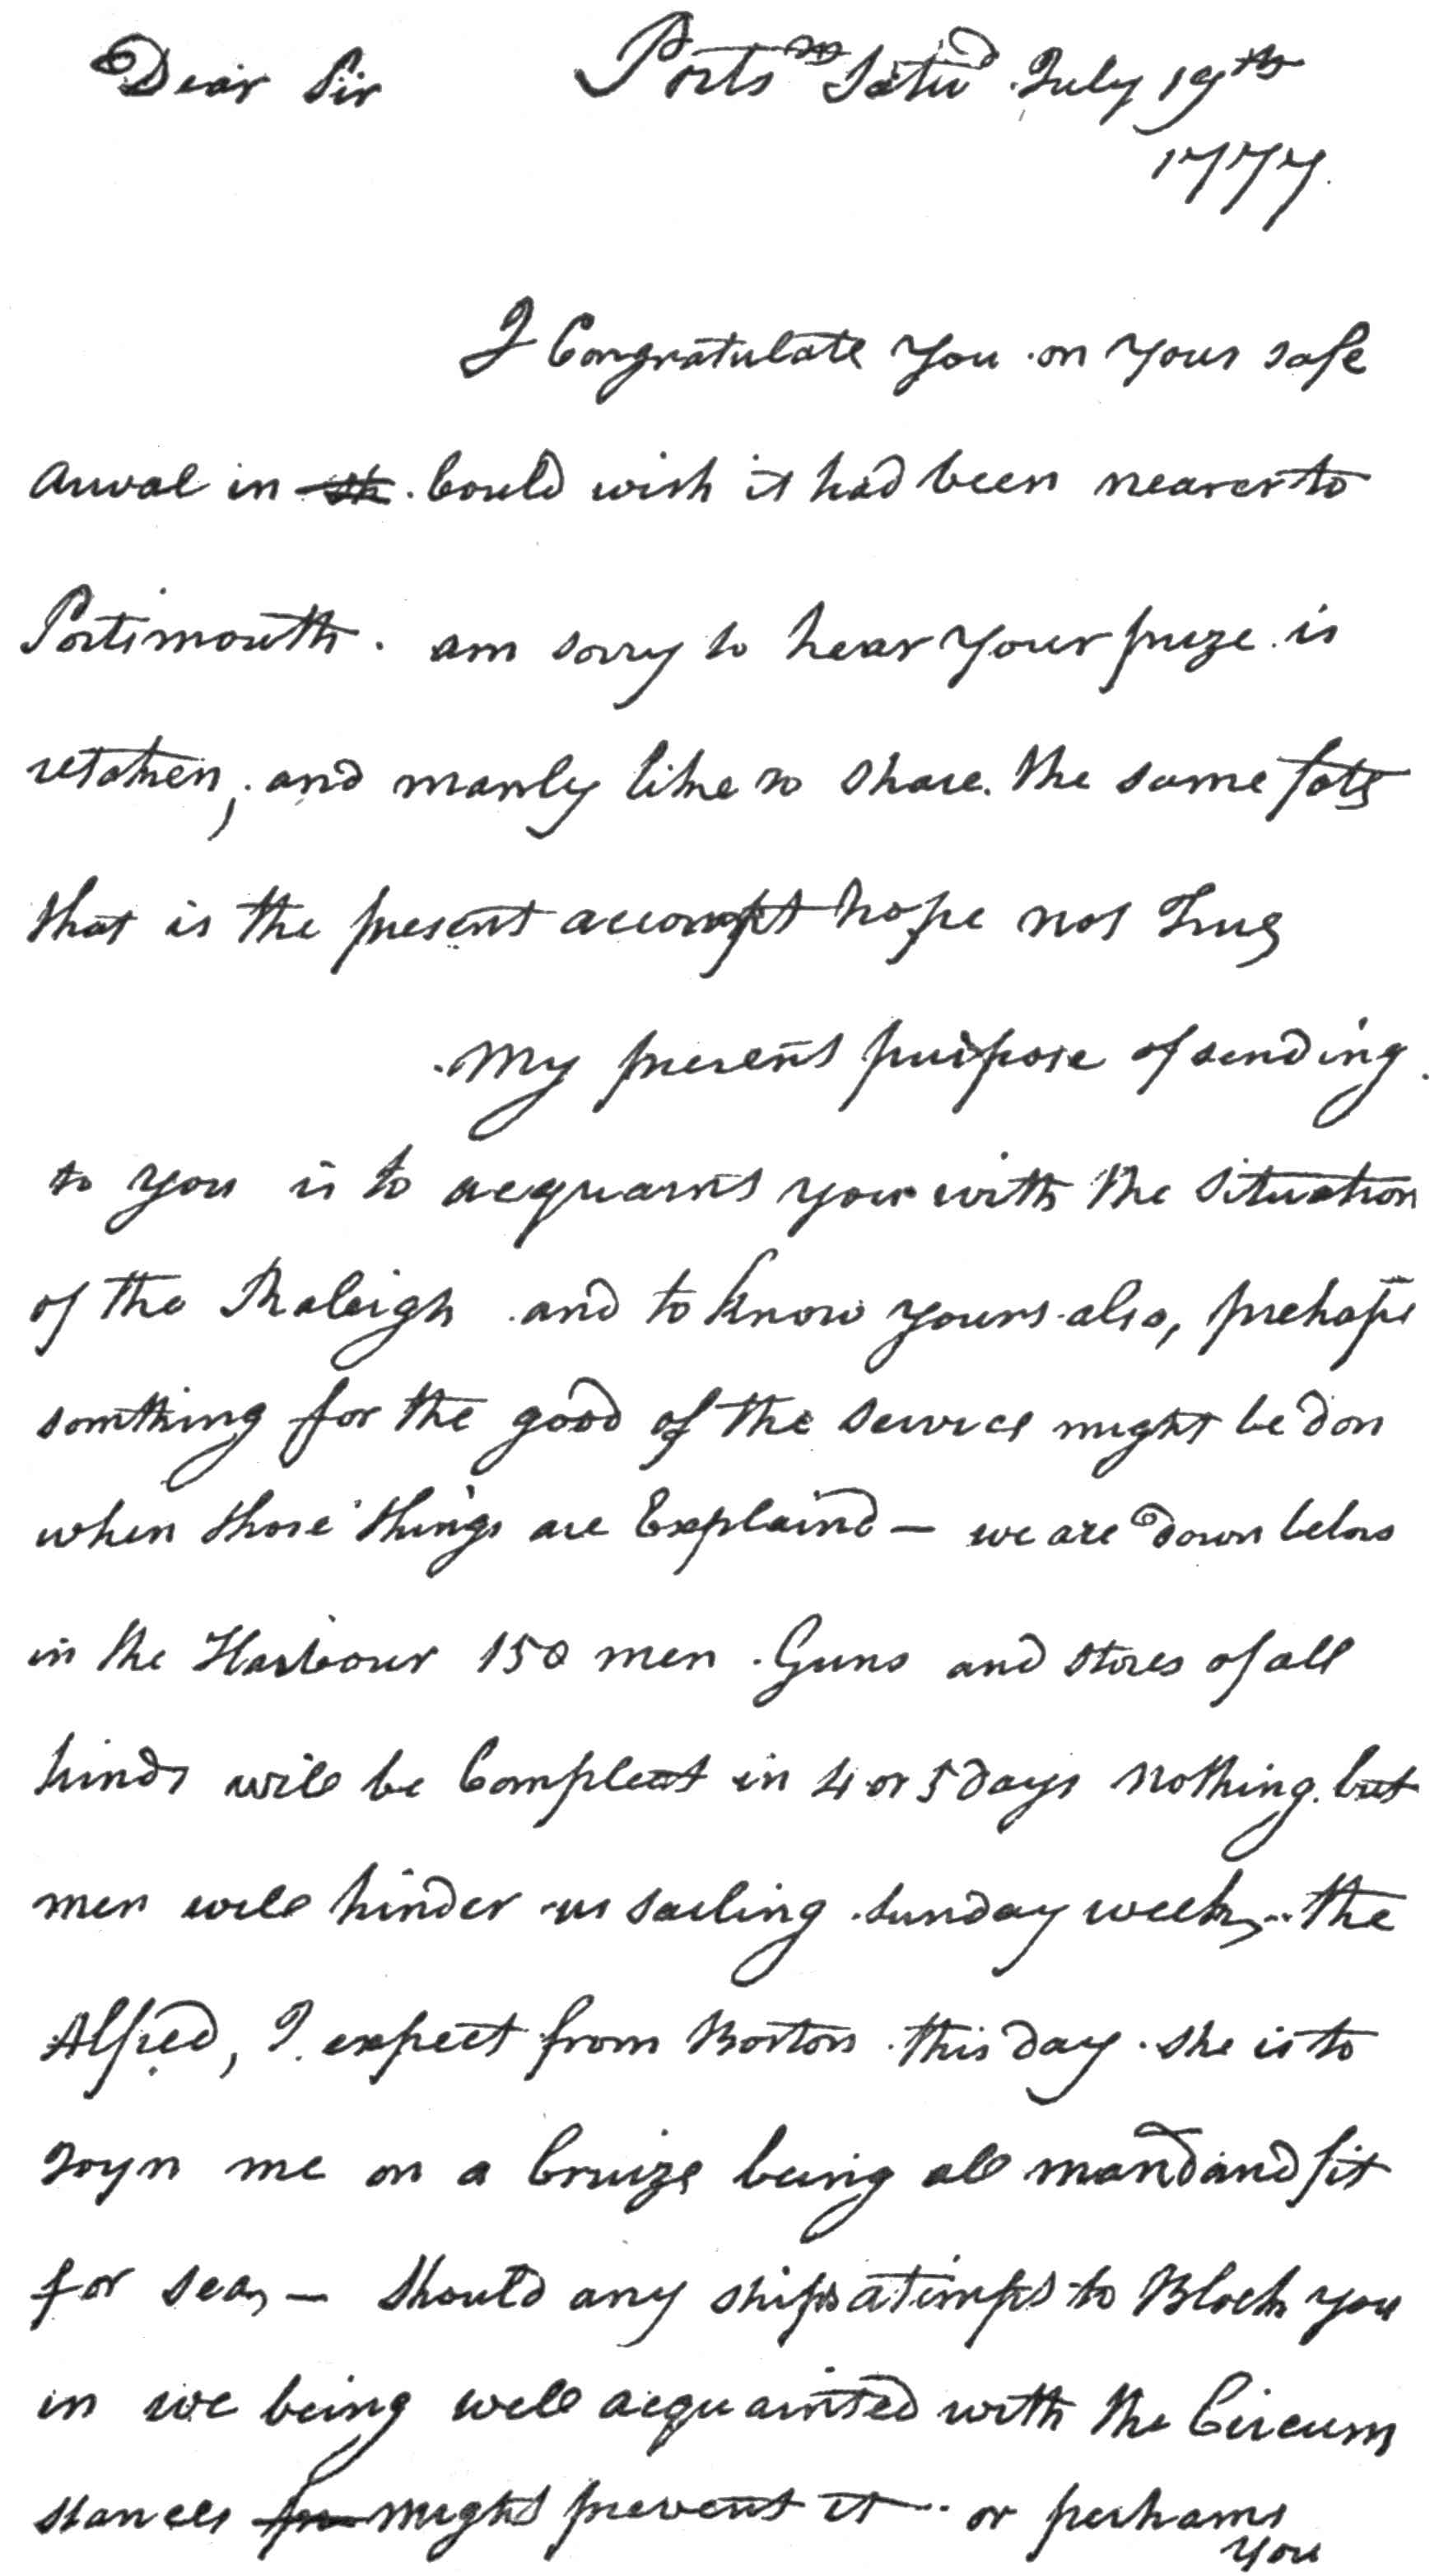 Dear Sir Portsm Saturd July 19th
1777.
I Congratulate you on your safe
arival in Could wish it had been nearer to
Portsmouth. am sorry to hear your prize is
retaken, and manly like to share the same fate
that is the present accompt hope not True
My present purpose of sending
to you is to acquaint you with the Situation
of the Raleigh and to know yours also, prehaps
somthing for the good of the service might be don
when those things are Explaind — we are down below
in the Harbour 150 men. Guns and Stores of all
kinds will be Compleat in 4 or 5 days nothing but
men will hinder us sailing Sunday week, the
Alfred, I expect from Boston this day. She is to
Joyn me on a Cruize being all mand and fit
for sea, — Should any ships atimpt to Block you
in we being well acquainted with the Circum
stances might prevent it or perhaps
you